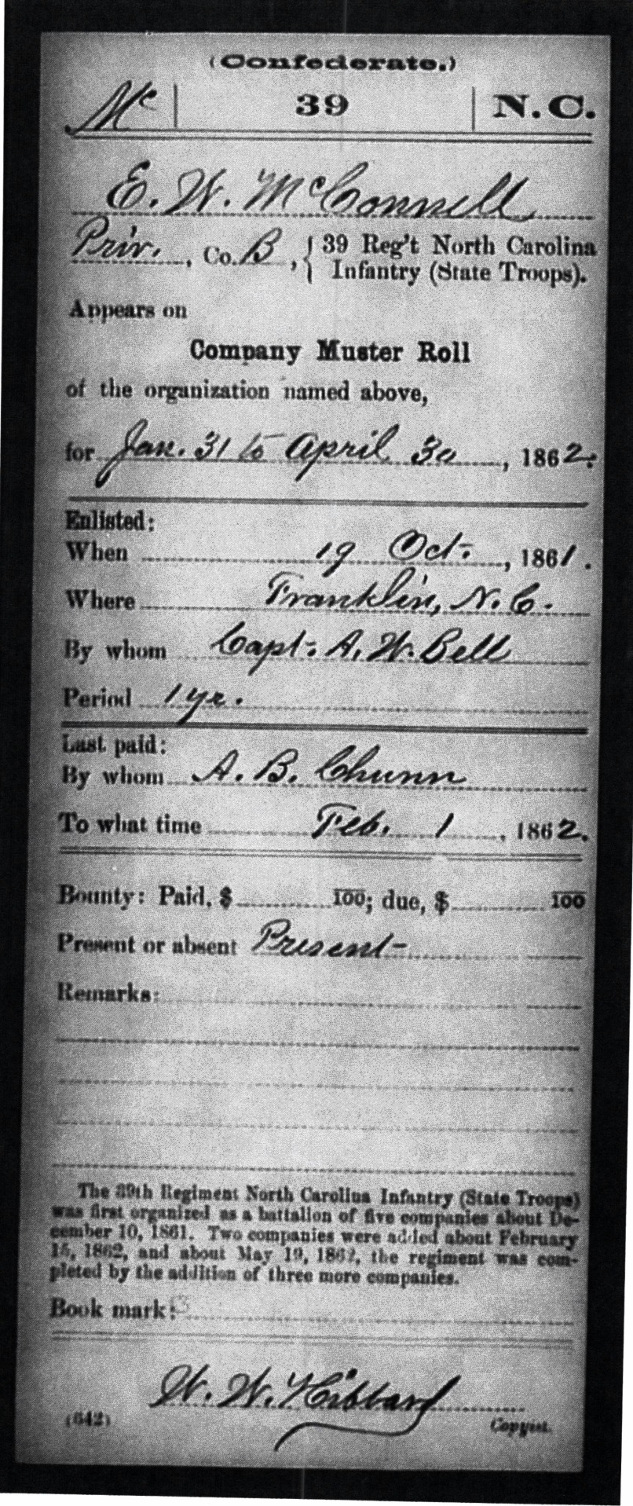 (Confederate.)
Mc | 39 | N.C.
E. W. McConnell
Priv., Co. B, { 39 Reg't North Carolina
Infantry (State Troops).
Appears on
Company Muster Roll
of the organization named above,
for Jan. 31 to April 30, 1862.
Enlisted:
When 19 Oct., 1861.
Where Franklin, N.C.
By whom Capt. A. W. Bell
Period 1 yr.
Last paid:
By whom A. B. Chunn
To what time Feb. 1, 1862.
Bounty: Paid, $ 100; due, $ 100
Present or absent Present
Remarks:
The 39th Regiment North Carolina Infantry (State Troops)
was first organized as a battalion of five companies about De-
cember 10, 1861. Two companies were added about February
15, 1862, and about May 19, 1862, the regiment was com-
pleted by the addition of three more companies.
Book mark:
W. W. Hibbard
(642) Copyist.